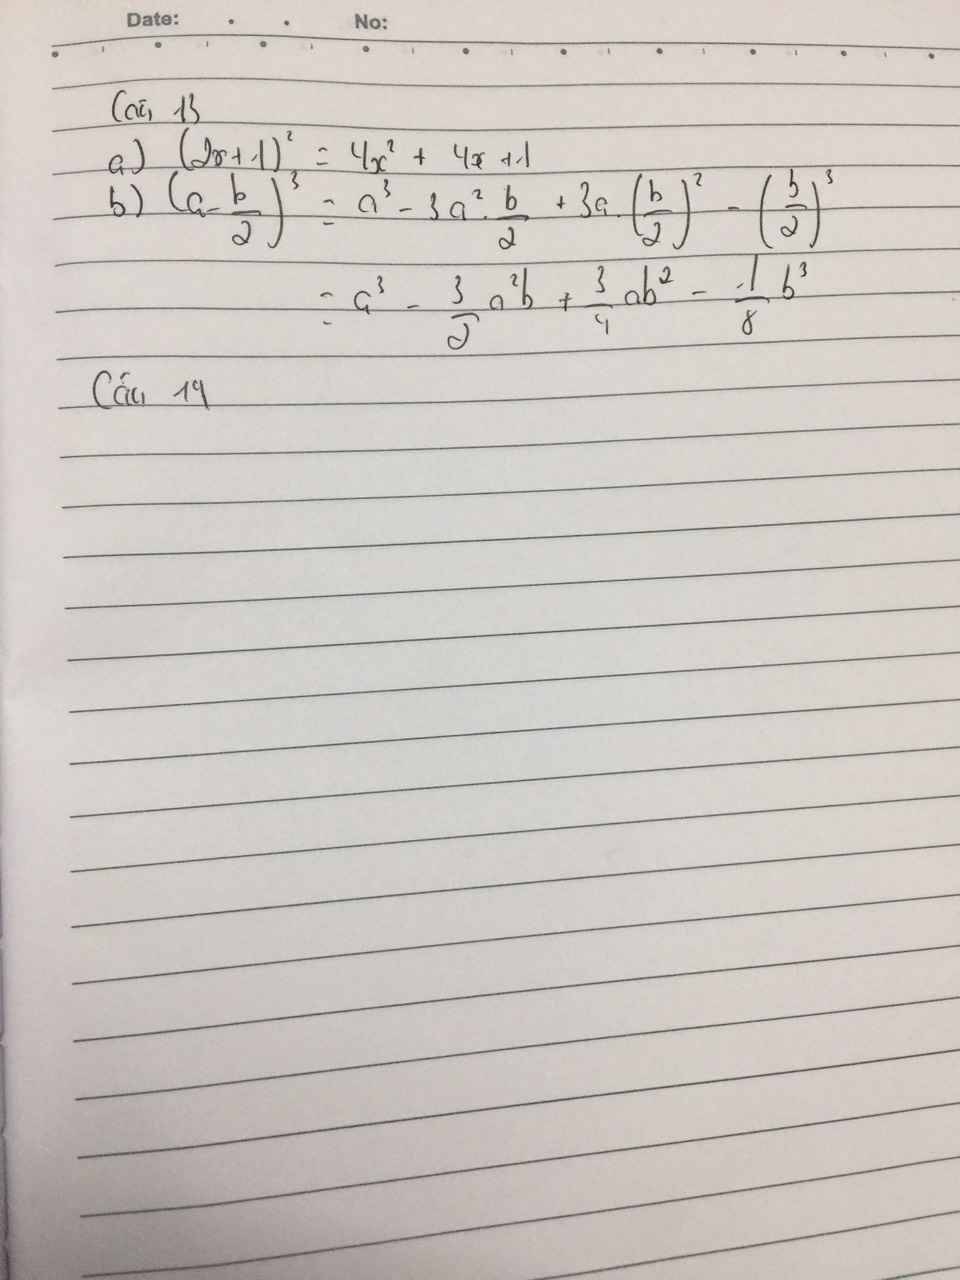 Date: . . No:
Câu 13
a) (2x+1)² = 4x² + 4x + 1
b) (a - b/2)³ = a³ - 3a². b/2 + 3a. (b/2)² - (b/2)³
= a³ - 3/2 a²b + 3/4 ab² - 1/8 b³
Câu 14